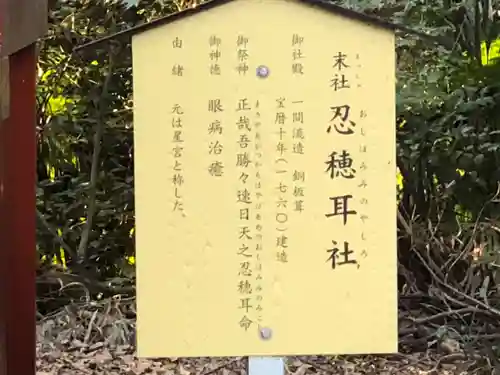 末社 忍穂耳社
まつしゃ おしほみみのやしろ
御社殿 一間流造 銅板葺
宝暦十年(一七六〇)建造
御祭神 正哉吾勝々速日天之忍穂耳命
まさかあかつかちはやびあめのおしほみみのみこと
御神徳 眼病治癒
由緒 元は星宮と称した。